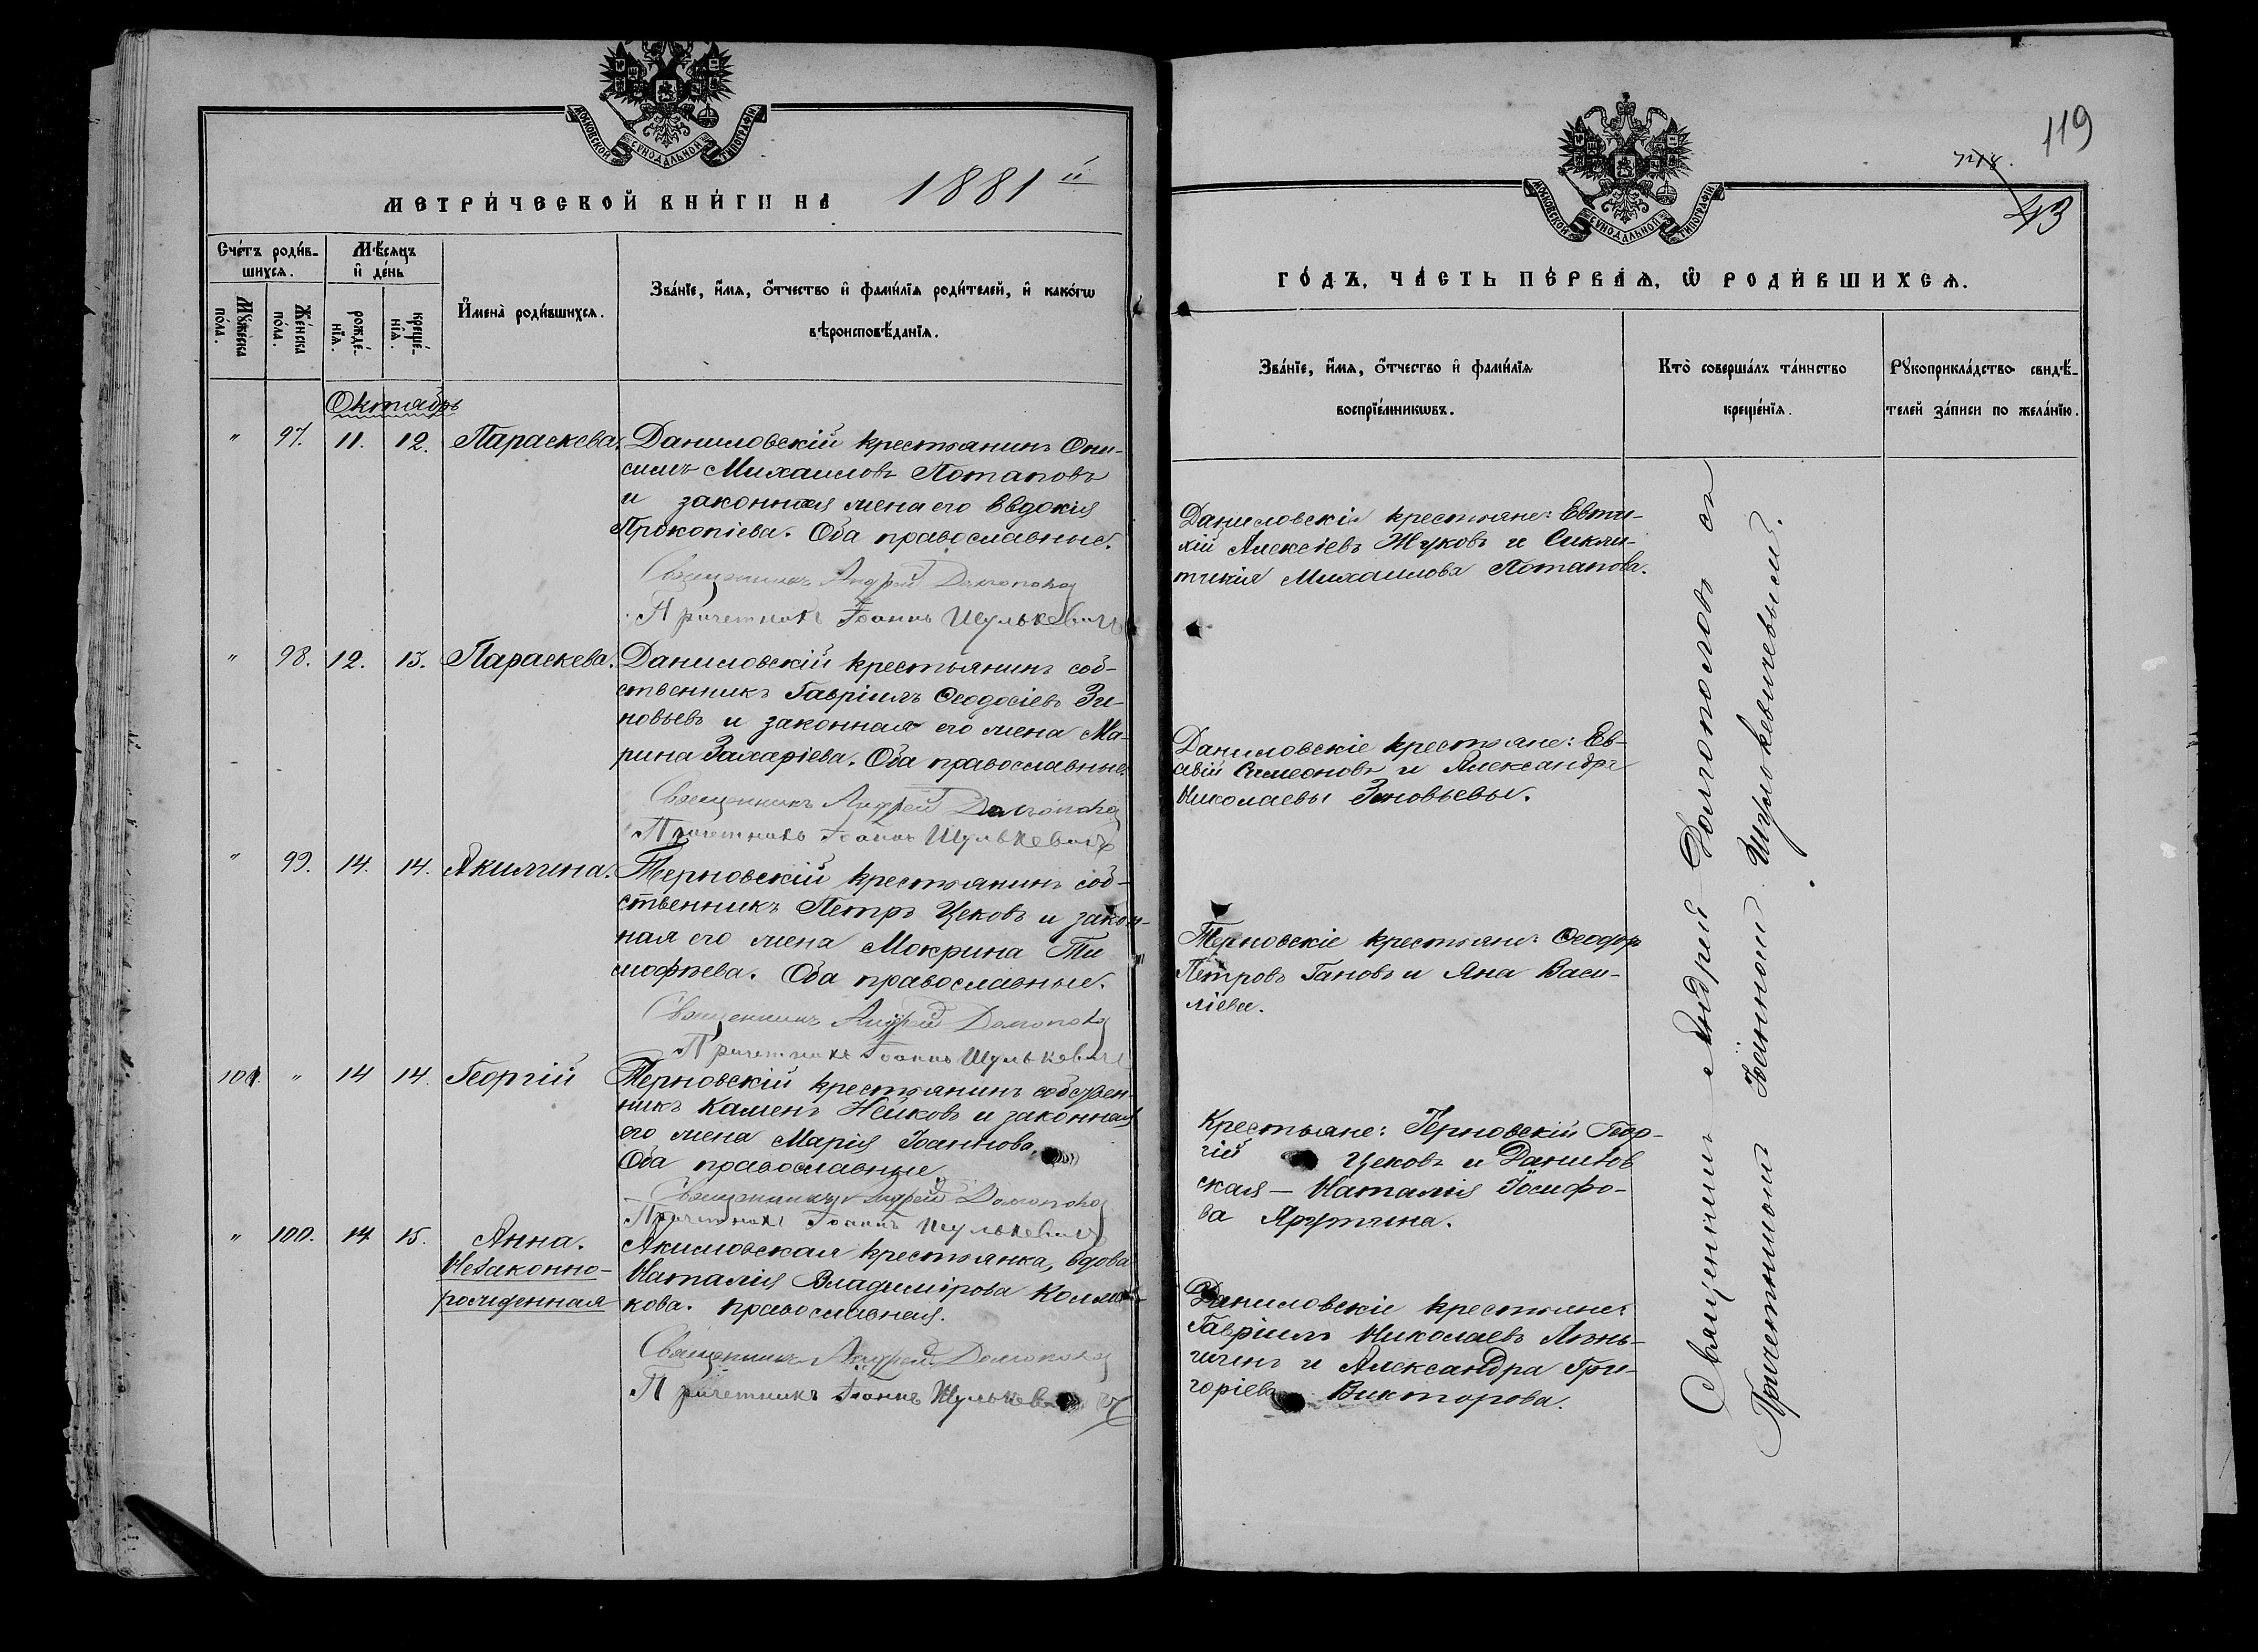 МОСКОВСКОЙ СУНОДАЛЬНОЙ ТИПОГРАФІИ
МЕТРИ́ЧЕСКОЙ КНИ́ГИ НА 1881 й
Сче́тъ роди́в-
шихся.
Мѣ́сяцъ
и де́нь
Му́жеска
по́ла.
Же́нска
по́ла.
рожде́-
нїя.
креще́-
нїя.
Имена̀ роди́вшихся.
Зва́нїе, и́мя, ѻ҆́тчество и҆ фами́лїя роди́телей, и҆ како́гѡ
вѣроисповѣ́данїя.
Октябрь
" 97. 11. 12. Параскева. Даниловскій крестьянинъ Они-
симъ Михаиловъ Потаповъ
и законная жена его Евдокія
Прокопіева. Оба православные.
Священникъ Андрей Долгопол
Причетникъ Іоаннъ Шулькевичъ
" 98. 12. 13. Параскева. Даниловскій крестьянинъ соб-
ственникъ Гавріилъ Ѳеодосіевъ Зи-
новьевъ и законная его жена Ма-
рина Захаріева. Оба православные.
Священникъ Андрей Долгопол
Причетникъ Іоаннъ Шулькевичъ
" 99. 14. 14. Акилина. Терновскій крестьянинъ соб-
ственникъ Петръ Цековъ и закон-
ная его жена Мокрина Ти
мофѣева. Оба православные.
Священникъ Андрей Долгопол
Причетникъ Іоаннъ Шулькевичъ
101. " 14 14. Георгій Терновскій крестьянинъ собствен-
никъ Каменъ Нейковъ и законная
его жена Марія Іоаннова.
Оба православные
Священникъ Андрей Долгопол
Причетникъ Іоаннъ Шулькевичъ
" 100. 14 15. Анна. Акимовская крестьянка, вдова
Незаконно- Наталія Владимірова
рожденная кова. православная.
Священникъ Андрей Долгопол
Причетникъ Іоаннъ Шулькевичъ
119
43
МОСКОВСКОЙ СУНОДАЛЬНОЙ ТИПОГРАФІИ
ГО́ДЪ, ЧА́СТЬ ПЕ́РВАЯ, Ѿ РОДИ́ВШИХСЯ.
Зва́нїе, и́мя, ѻ҆́тчество и҆ фами́лїя
воспрїе́мникѡвъ.
Кто̀ соверша́лъ та́инство
креще́нїя.
Рꙋкоприкла́дство свидѣ́-
телей за́писи по жела́нїю.
Даниловскіе крестьяне: Евти-
хій Алексіевъ Жуковъ и Сикли-
тикія Михаилова Потапова.
Даниловскіе крестьяне: Ев-
Симеоновъ и Александра
Николаевы Зиновьевы.
Терновскіе крестьяне: Ѳеодоръ
Петровъ Гановъ и Яна Васи-
ліева.
Крестьяне: Терновскій Геор-
гій Цековъ и Данилов
ская — Наталія Іосифо-
ва Яругина.
Даниловскіе крестьяне:
Гавріилъ Николаевъ
и Александра Гри-
горіева Викторова.
Священникъ Андрей Долгополовъ съ
Причетникомъ Іоанномъ Шулькевичевымъ.